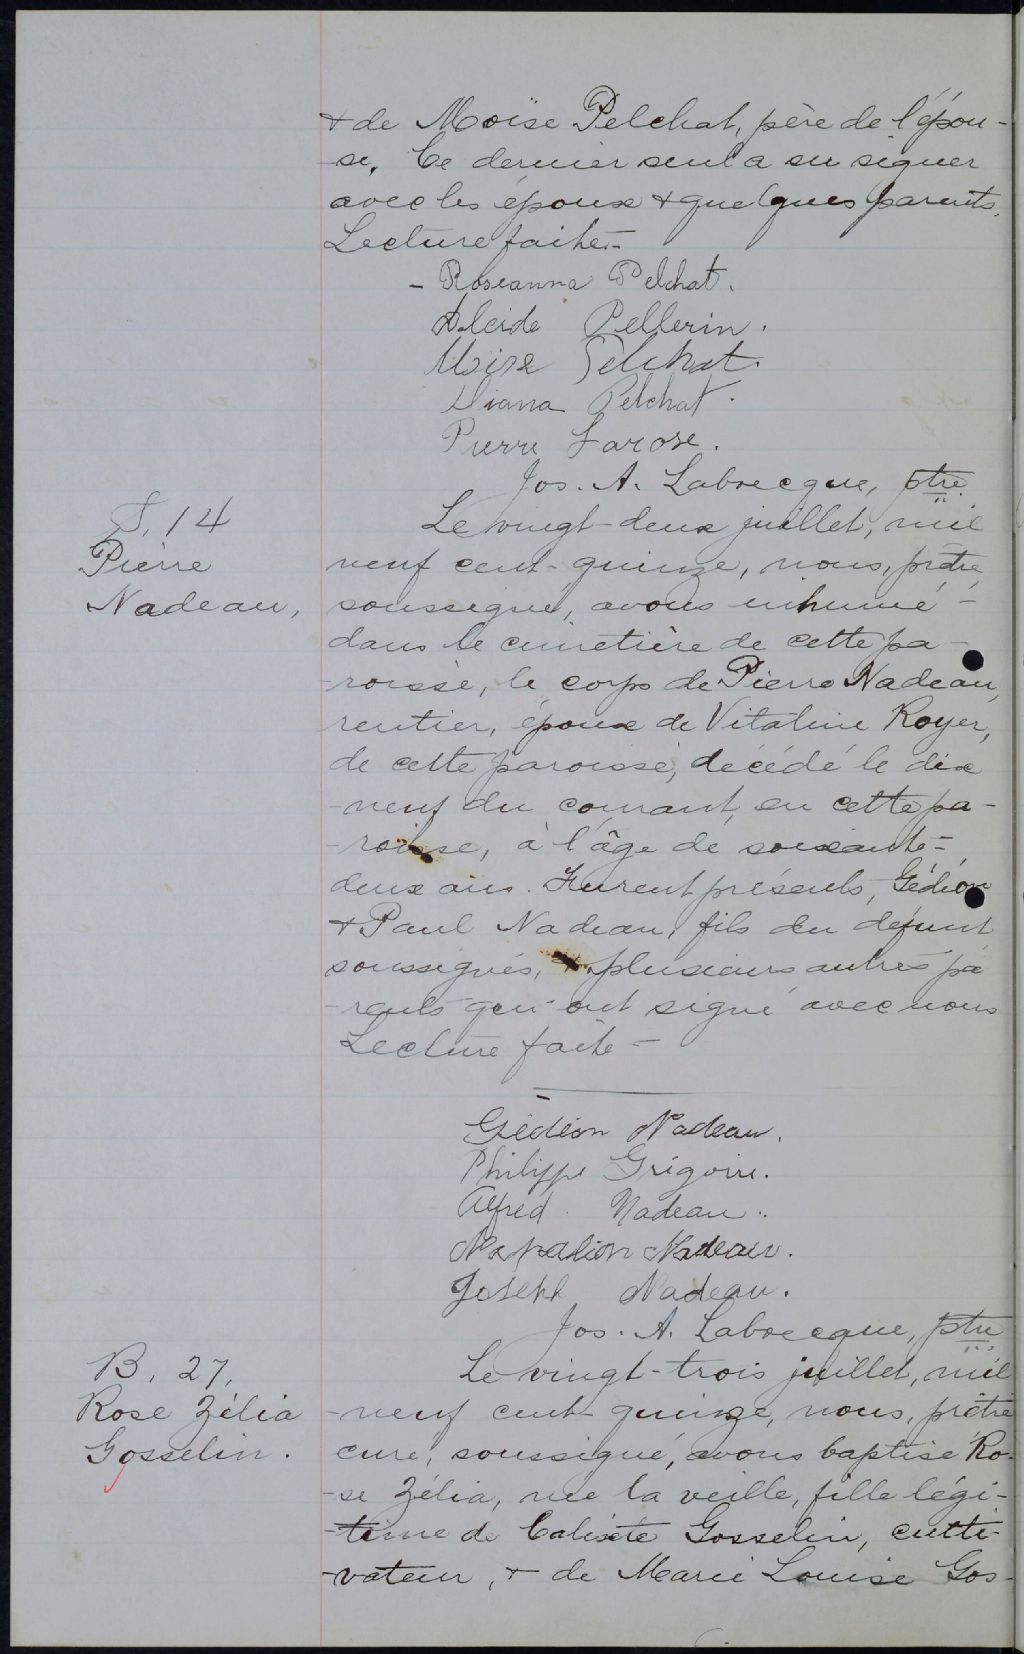 + de Moïse Pelchat, père de l'épou-
-se. Ce dernier seul a su signer
avec les époux + quelques parents.
Lecture faite.-
- Roseanna Pelchat.
Alcide Pellerin.
Moise Pelchat.
Diana Pelchat.
Pierre Larose.
Jos. A. Labrecque, ptre
S. 14
Pierre
Nadeau,
Le vingt-deux juillet, mil
neuf cent-quinze, nous, prêtre,
soussigné, avons inhumé -
dans le cimetière de cette pa-
-roisse, le corps de Pierre Nadeau,
rentier, époux de Vitaline Royer,
de cette paroisse, décédé le dix
-neuf du courant, en cette pa-
-roisse, à l'âge de soixante-
deux ans. Furent présents, Gédéon
+ Paul Nadeau, fils du défunt
soussignés, + plusieurs autres pa
-rents qui ont signé avec nous
Lecture faite -
Gédéon Nadeau.
Philippe Grégoire.
Alfred. Nadeau.
Napoléon Nadeau.
Joseph Nadeau.
Jos. A. Labrecque, ptre
B. 27,
Rose Zélia
Gosselin.
Le vingt-trois juillet, mil
-neuf cent-quinze, nous, prêtre
curé, soussigné, avons baptisé Ro-
-se Zélia, née la veille, fille légi-
-time de Calixte Gosselin, culti-
-vateur, + de Marie Louise Gos-